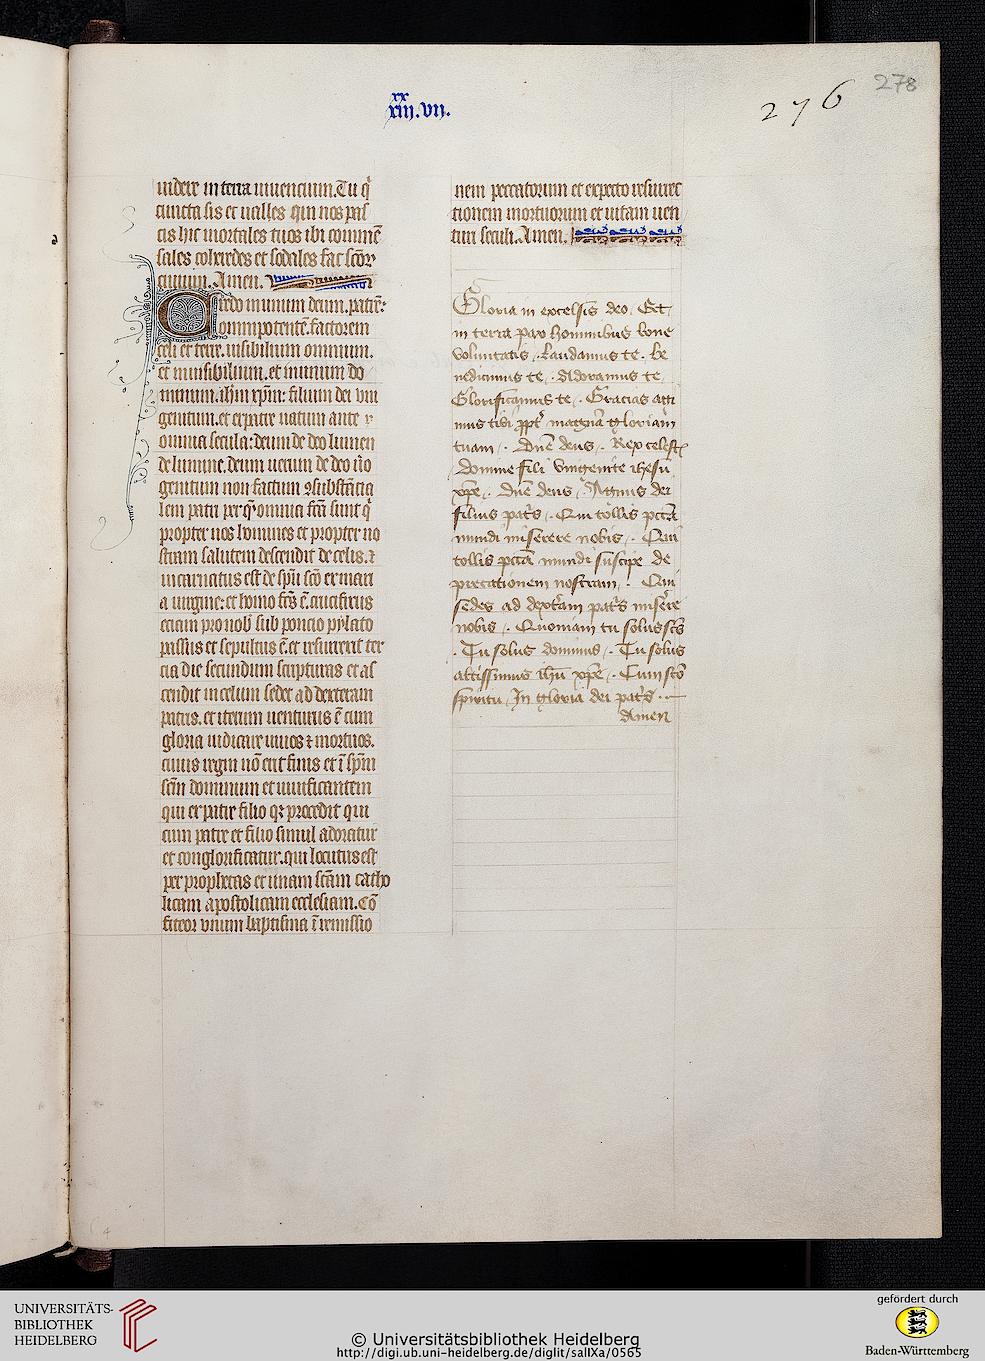 278
276
xx
xiiij.vij.
uidere in terra uiuencium. Tu q̄
cuncta sis et ualles qui nos pas
cis hic mortales tuos ibi comme͂
sales coheredes et sodales fac sc͂or
ciuium. Amen.
Credo in unum deum. patre͂
omnipotente͂. factorem
celi et terre. uisibilium omnium.
et inuisibilium. et in unum do
minum. ih͂m xp͂m: filium dei vni
genitum. et ex patre natum ante
omnia secula: deum de deo lumen
de lumine. deum uerum de deo u͂o
genitum non factum ꝯsubsta͂cia
lem patri per que͂ omnia fc͂a sunt q̄
propter nos homines et propter no
stram salutem descendit de celis. ⁊
incarnatus est de sp͂u sc͂o ex mari
a uirgine: et homo fc͂s e͂. crucifixus
eciam pro nob͂ sub poncio pylato
passus et sepultus e͂. et resurrexit ter
cia die secundum scripturas et as
cendit in celum sedet ad dexteram
patris. et iterum uenturus e͂ cum
gloria iudicare uiuos ⁊ mortuos.
cuius regni no͂ erit finis et i͂ sp͂m
sc͂m dominum et uiuificantem
qui ex patre filio qꝫ procedit qui
cum patre et filio simul adoratur
et conglorificatur. qui locutus est
per prophetas et unam sc͂am catho
licam apostolicam ecclesiam. Co͂
fiteor vnum baptisma i͂ remissio
nem peccatorum et expecto resurrec
tionem mortuorum et uitam uen
turi seculi. Amen.
Gloria in excelsis deo. Et
in terra pax hominibus bone
voluntatis. Laudamus te. be
nedicimus te. Adoramus te
Glorificamus te. Gracias agi
mus tibi ꝓpt͛ magna͂ gloriam
tuam. Dn͂e deus. Rex celest͛
domine fili vnigenite ihesu
xp͂e. Dn͂e deus. Agnus dei
filius pat͛s. Qui tollis pc͂ta
mundi miserere nobis. Qui
tollis pc͂ta mundi suscipe de
precationem nostram. Qui
sedes ad dext͛am pat͛s mis͛ere
nobis. Quoniam tu solus sc͂s
Tu solus dominus. Tu solus
altissimus ih͂u xp͂e. Cum sc͂o
spiritu. In gloria dei pat͛s
Amen
UNIVERSITÄTS-
BIBLIOTHEK
HEIDELBERG
© Universitätsbibliothek Heidelberg
http://digi.ub.uni-heidelberg.de/diglit/salIXa/0565
gefördert durch
Baden-Württemberg